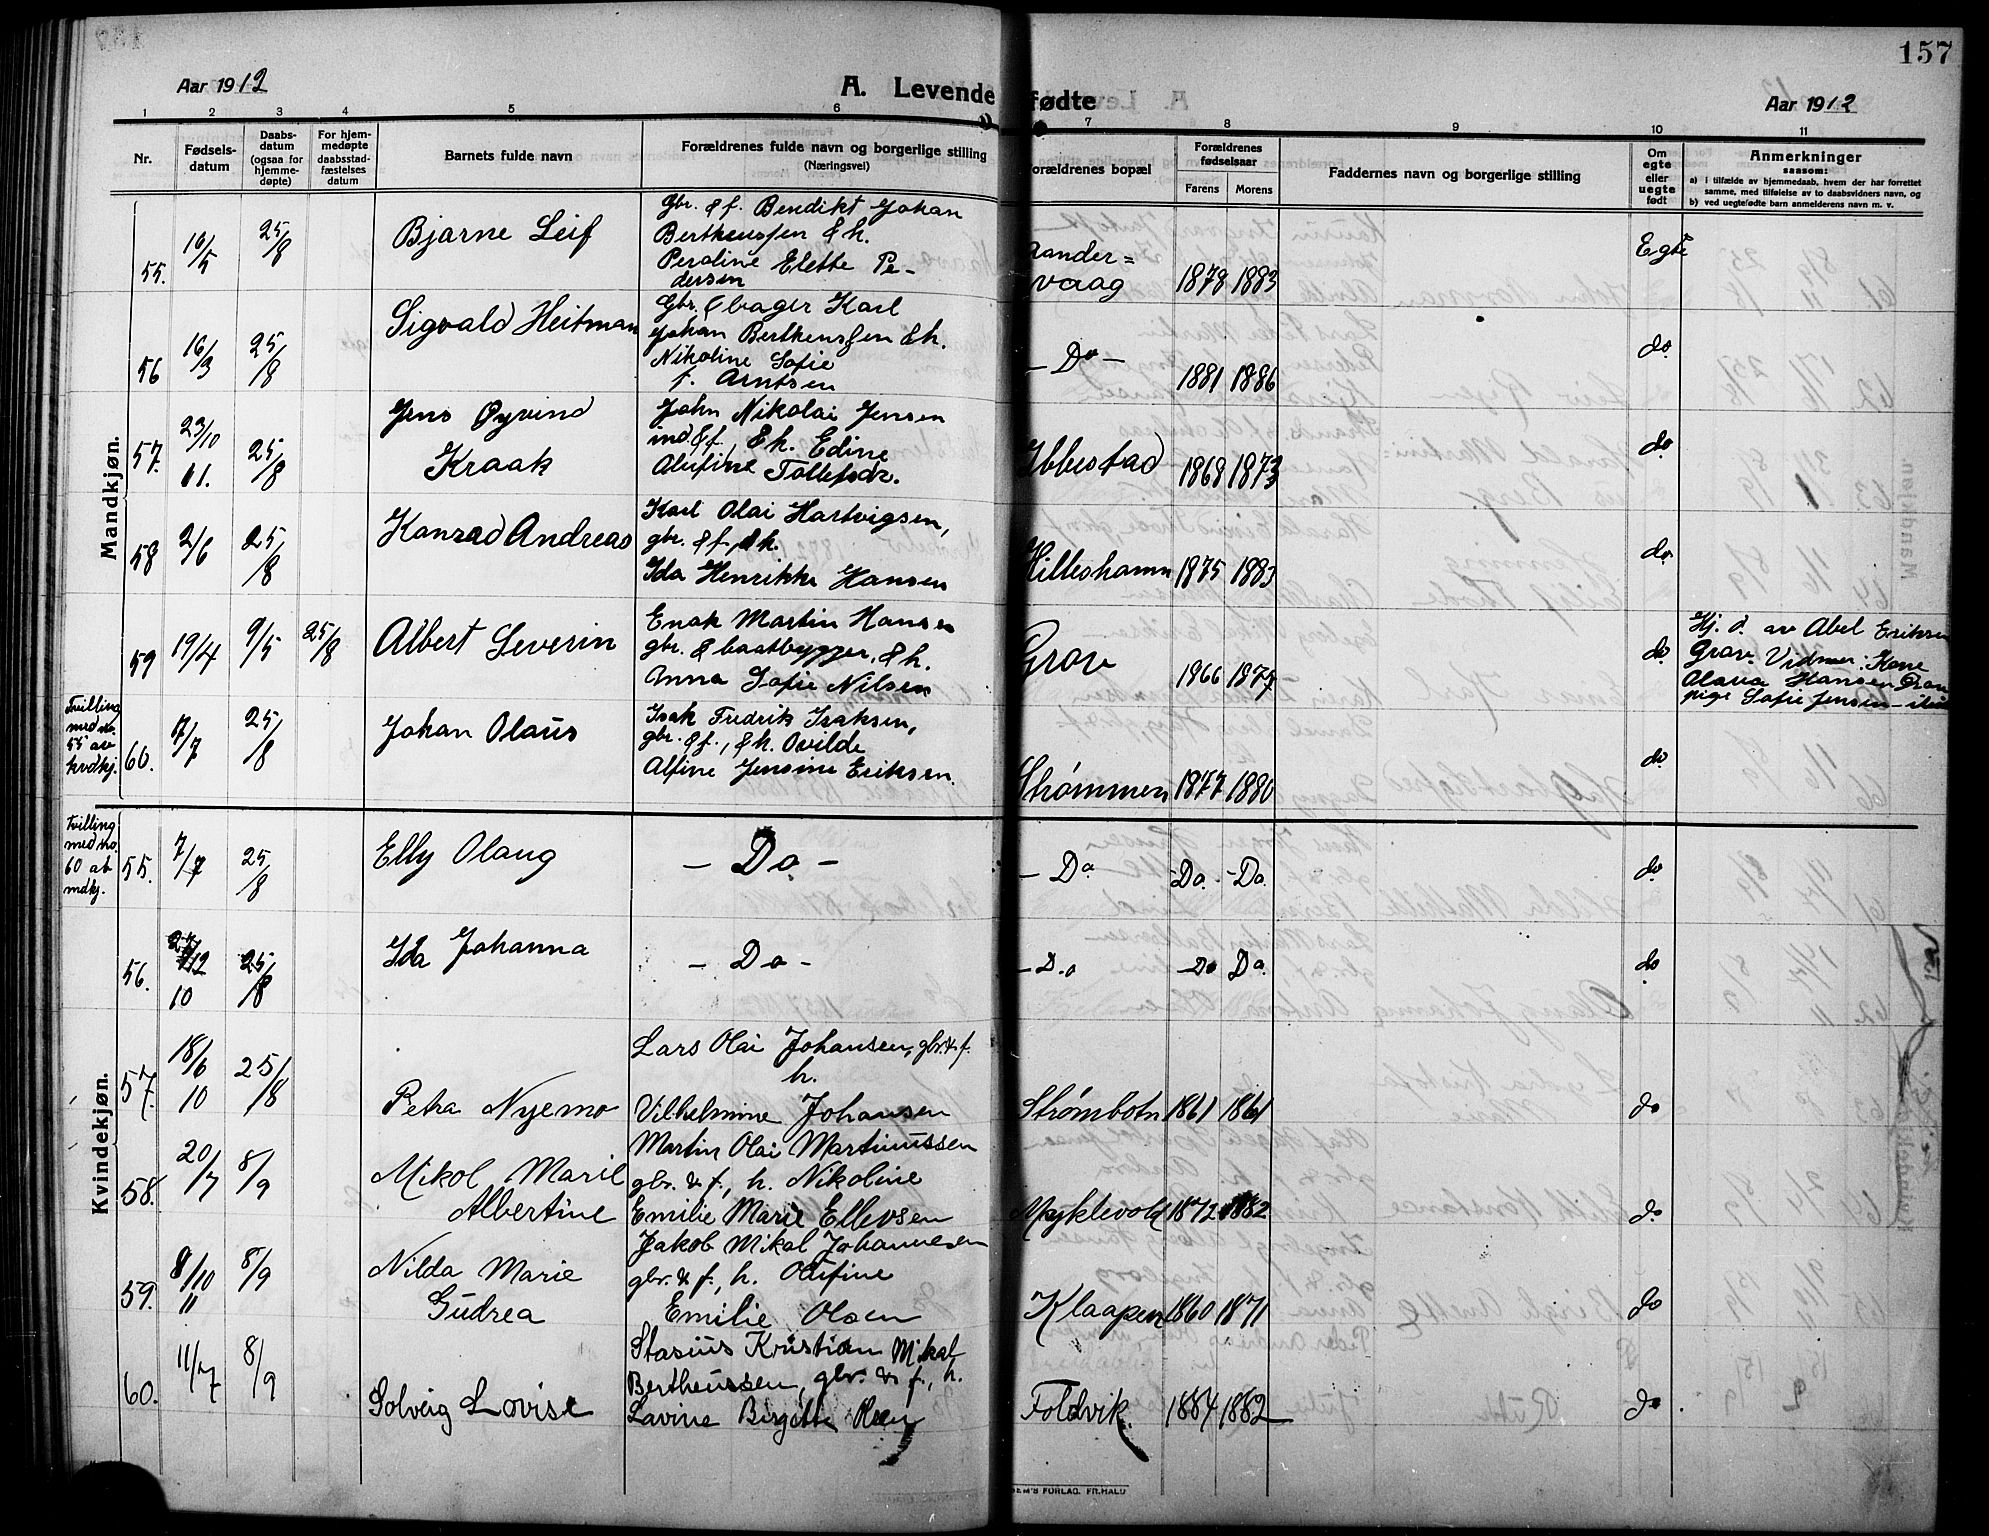 157
Aar 1912
A. Levende fødte
Aar 1912
1 2 3 4 5 6 7 8 9 10 11
Nr.
Fødsels-
datum
Daabs-
datum
(ogsaa for
hjemme-
døpte)
For hjem-
medøpte
daabsstad-
fæstelses
datum
Barnets fulde navn
Forældrenes fulde navn og borgerlige stilling
(Næringsvei)
Forældrenes bopæl
Forældrenes
fødselsaar
Farens Morens
Faddernes navn og borgerlige stilling
Om
egte
eller
uegte
født
Anmerkninger
saasom:
a) i tilfælde av hjemmedaab, hvem der har forrettet
samme, med tilføielse av to daabsvidners navn, og
b) ved uegtefødte barn anmelderens navn m. v.
Mandkjøn.
55. 16/5 25/8 Bjarne Leif
Gbr. & f. Bendikt Johan
Bertheussen & h.
Peroline Elette Pe-
dersen
vaag 1878 1883 Egte
56 16/3 25/8 Sigvald Heitman
Gbr. & bager Karl
Johan Bertheussen & h.
Nikoline Sofie
f. Arntsen
- Do - 1881 1886 do.
57. 23/10 11. 25/8 Jens Øyvind
Kraak
John Nikolai Jensen
ind. & f., & h. Edine
Alufine Tollefsdr.
Ibbestad 1868 1873 do.
58 2/6 25/8 Konrad Andreas
Karl Olai Hartvigsen,
gbr. & f., & h.
Ida Henrikke Hansen
Hilleshamn 1875 1883 do.
59 19/4 9/5 25/8 Albert Severin
Enok Martin Hansen
gbr. & baatbygger, & h.
Anna Sofie Nilsen
Grov 1866 1877 do.
Hj. d. av Abel Eriksen
Grov. Vidner: Kone
Olava Hansen Grov
pige Sofie Jensen -
Tvilling
med no.
55 av
kvdkj.
60. 7/7 25/8 Johan Olaus
Isak Fredrik Isaksen,
gbr. & f., & h. Ovilde
Alfine Jensine Eriksen.
Strømmen 1877 1880 do.
Kvindekjøn.
Tvilling
med no.
60 at
mdkj.
55. 7/7 25/8 Elly Olaug
- Do. -
- Do Do. - Do. do.
56. 12 10 25/8 Ida Johanna
- Do -
- Do - Do Do. do
57. 18/6 10 25/8 Petra Nyemo
Lars Olai Johansen, gbr. & f.
h.
Vilhelmine Johansen
Strømbotn 1861 1861 do
58. 20/7 8/9 Mikol Marie
Albertine
Martin Olai Martinussen
gbr. & f., h. Nikoline
Emilie Marie Ellevsen
Myklevold 1872 1882 do
59. 8/10 11 8/9 Nilda Marie
Gudrea
Jakob Mikal Johannesen
gbr. & f., h. Olufine
Emilie Olsen
Klaapen 1860 1871 do
60. 11/7 8/9 Solveig Lovise
Stasius Kristian Mikal
Bertheussen, gbr. & f., h.
Lavine Birgitte Olsen
Foldvik. 1884 1882 do
FORLAG. FR.HALD